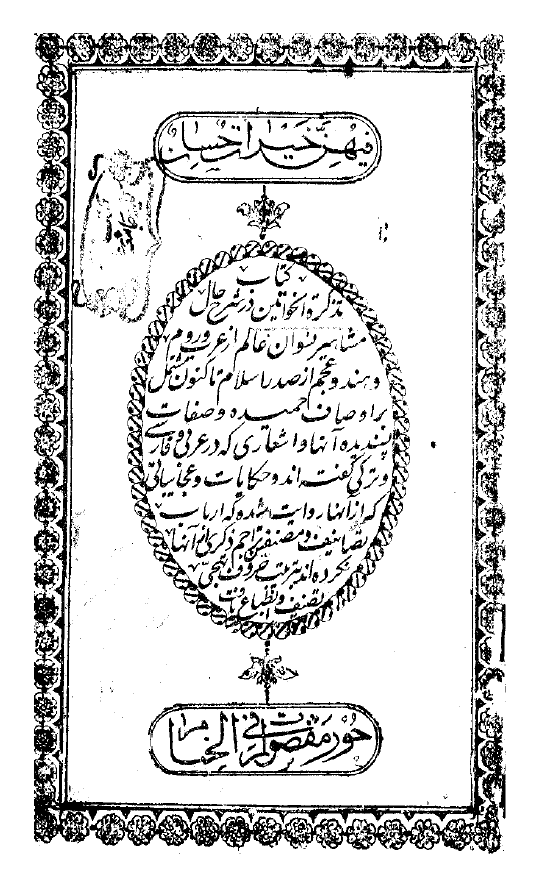 فیهنّ خیرات حسان
کتاب
تذکرة الخواتین در شرح حال
مشاهیر نسوان عالم از عرب و روم
و هند و عجم از صدر اسلام تاکنون مشتمل
بر اوصاف حمیده و صفات
پسندیده آنها و اشعاری که در عربی و فارسی
و ترکی گفته اند و حکایات و عجایباتی
که از آنها روایت شده که ارباب
تصانیف و مصنفین تراجم ذکری از آنها
نکرده اند بترتیب حروف تهجّی
تصنیف و انطباع یافت
حور مقصورات فی الخیام